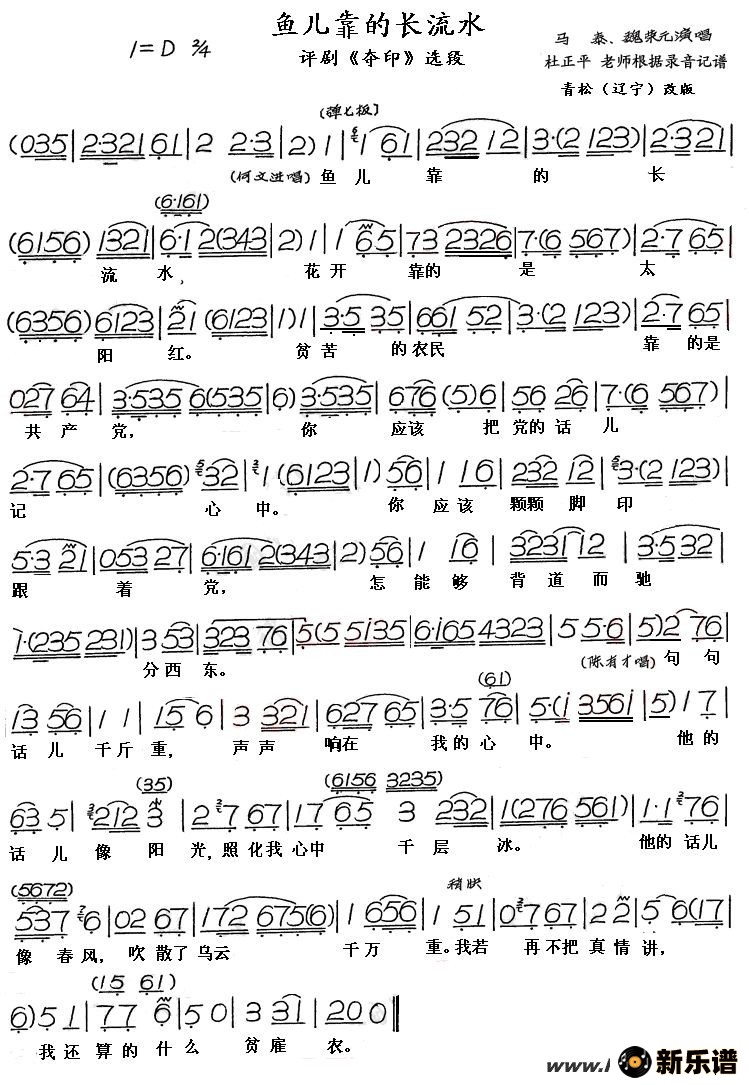 鱼儿靠的长流水
1=D 2/4
评剧《夺印》选段
马 泰、魏荣元演唱
杜正平 老师根据录音记谱
青松（辽宁）改版
(弹七板)
(035|2·32161|2 2·3|2)1|1 61|232 12|3·(2 123)|2·321|
(何文进唱) 鱼 儿 靠 的 长
(6·161)
(6156)|1321|6·1 2(343|2)1|1 65|73 2326|7·(6 567)|2·7 65|
流 水， 花 开 靠的 是 太
(6356)|6123|21(6123|1)1|3·5 35|661 52|3·(2 123)|2·7 65|
阳 红。 贫 苦 的 农民 靠 的是
027 64|3·535 6(535|6)3·535|676 (5)6|56 26|7·(6 567)|
共 产 党， 你 应该 把 党的 话 儿
2·7 65|(6356)|32|1(6123|1)56|1 16|232 12|3·(2 123)|
记 心 中。 你 应 该 颗颗 脚 印
5·3 21|053 27|6·161 2(343|2)56|1 16|3231 12|3·532|
跟 着 党， 怎 能 够 背 道 而 驰
1·(235 231)|3 53|323 76|5(5 5135|6·165 4323|5 5·6|5)2 76|
分 西 东。 (陈有才唱) 句 句
(61)
13 56|1 1|15 6|3 321|627 65|3·5 76|5·(i 3561|5)1 7|
话 儿 千 斤 重， 声 声 响在 我 的 心 中。 他 的
(35) (6156 3235)
63 5|212 3|2·7 67|17 65|3 232|1(276 561)|1·1 76|
话 儿 像 阳 光，照 化 我 心中 千 层 冰。 他的 话儿
(5672) 稍快
537 6|02 67|172 675(6)|1 656|1 51|0767|2 2|5 6(17|
像 春 风， 吹 散了 乌云 千万 重。我若 再 不把 真 情 讲，
(15 61)
6)51|77 6|5 0|3 31|20 0‖
我 还 算 的 什 么 贫 雇 农。
www.1
新乐谱